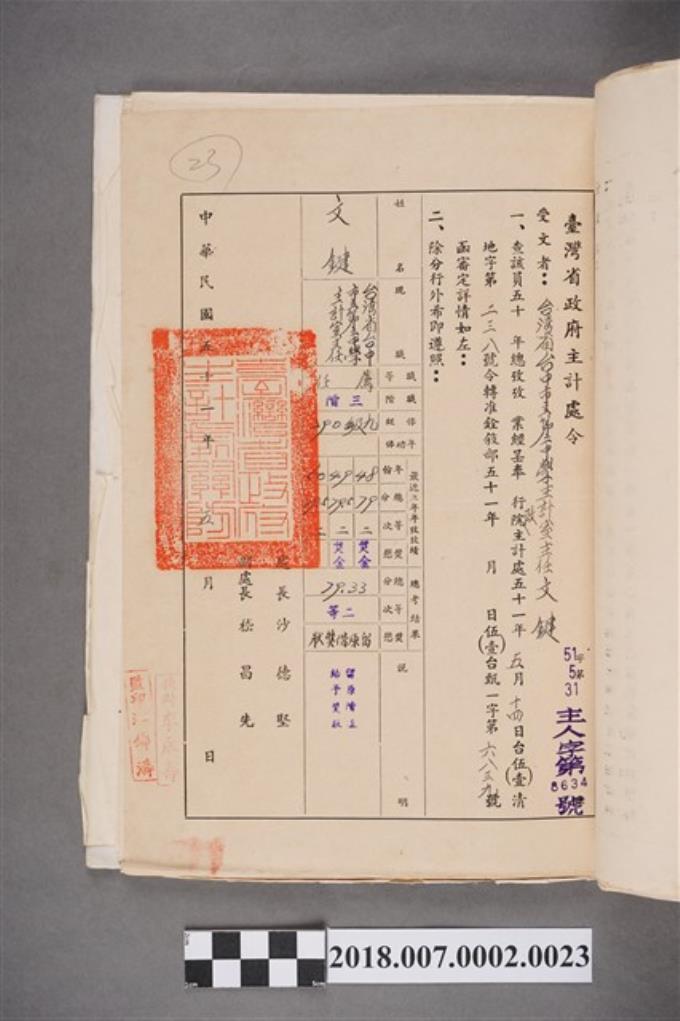 23
臺灣省政府主計處令
受文者：台灣省台中市立第五中學主計室主任文鍵
51年
5第
31
主人字第
8634
號
一、查該員五十　年總考攷　業經呈奉　行政院主計處五十一年　五月十四日台(伍壹)清
地字第　二三八號令轉准銓敘部五十一年　月　日(伍壹)台甄一字第　六八三九號
函審定詳情如左：
二、除分行外希即遵照：
姓名
現職
職等
職階
俸級
年功俸
最近三年年攷攷績
年份
總分
等次
獎懲
總考結果
總分
等次
獎懲
說明
文鍵
台灣省台中
主計室主任
薦任
三階
九級
390
48
79
二
獎金
49
二
獎金
79.33
二等
留原階獎狀
留原階並
給予獎狀
處長沙德堅
副處長嵇昌先
中華民國五十一年五月　日
臺灣省政府
主計處印
監印
2018.007.0002.0023